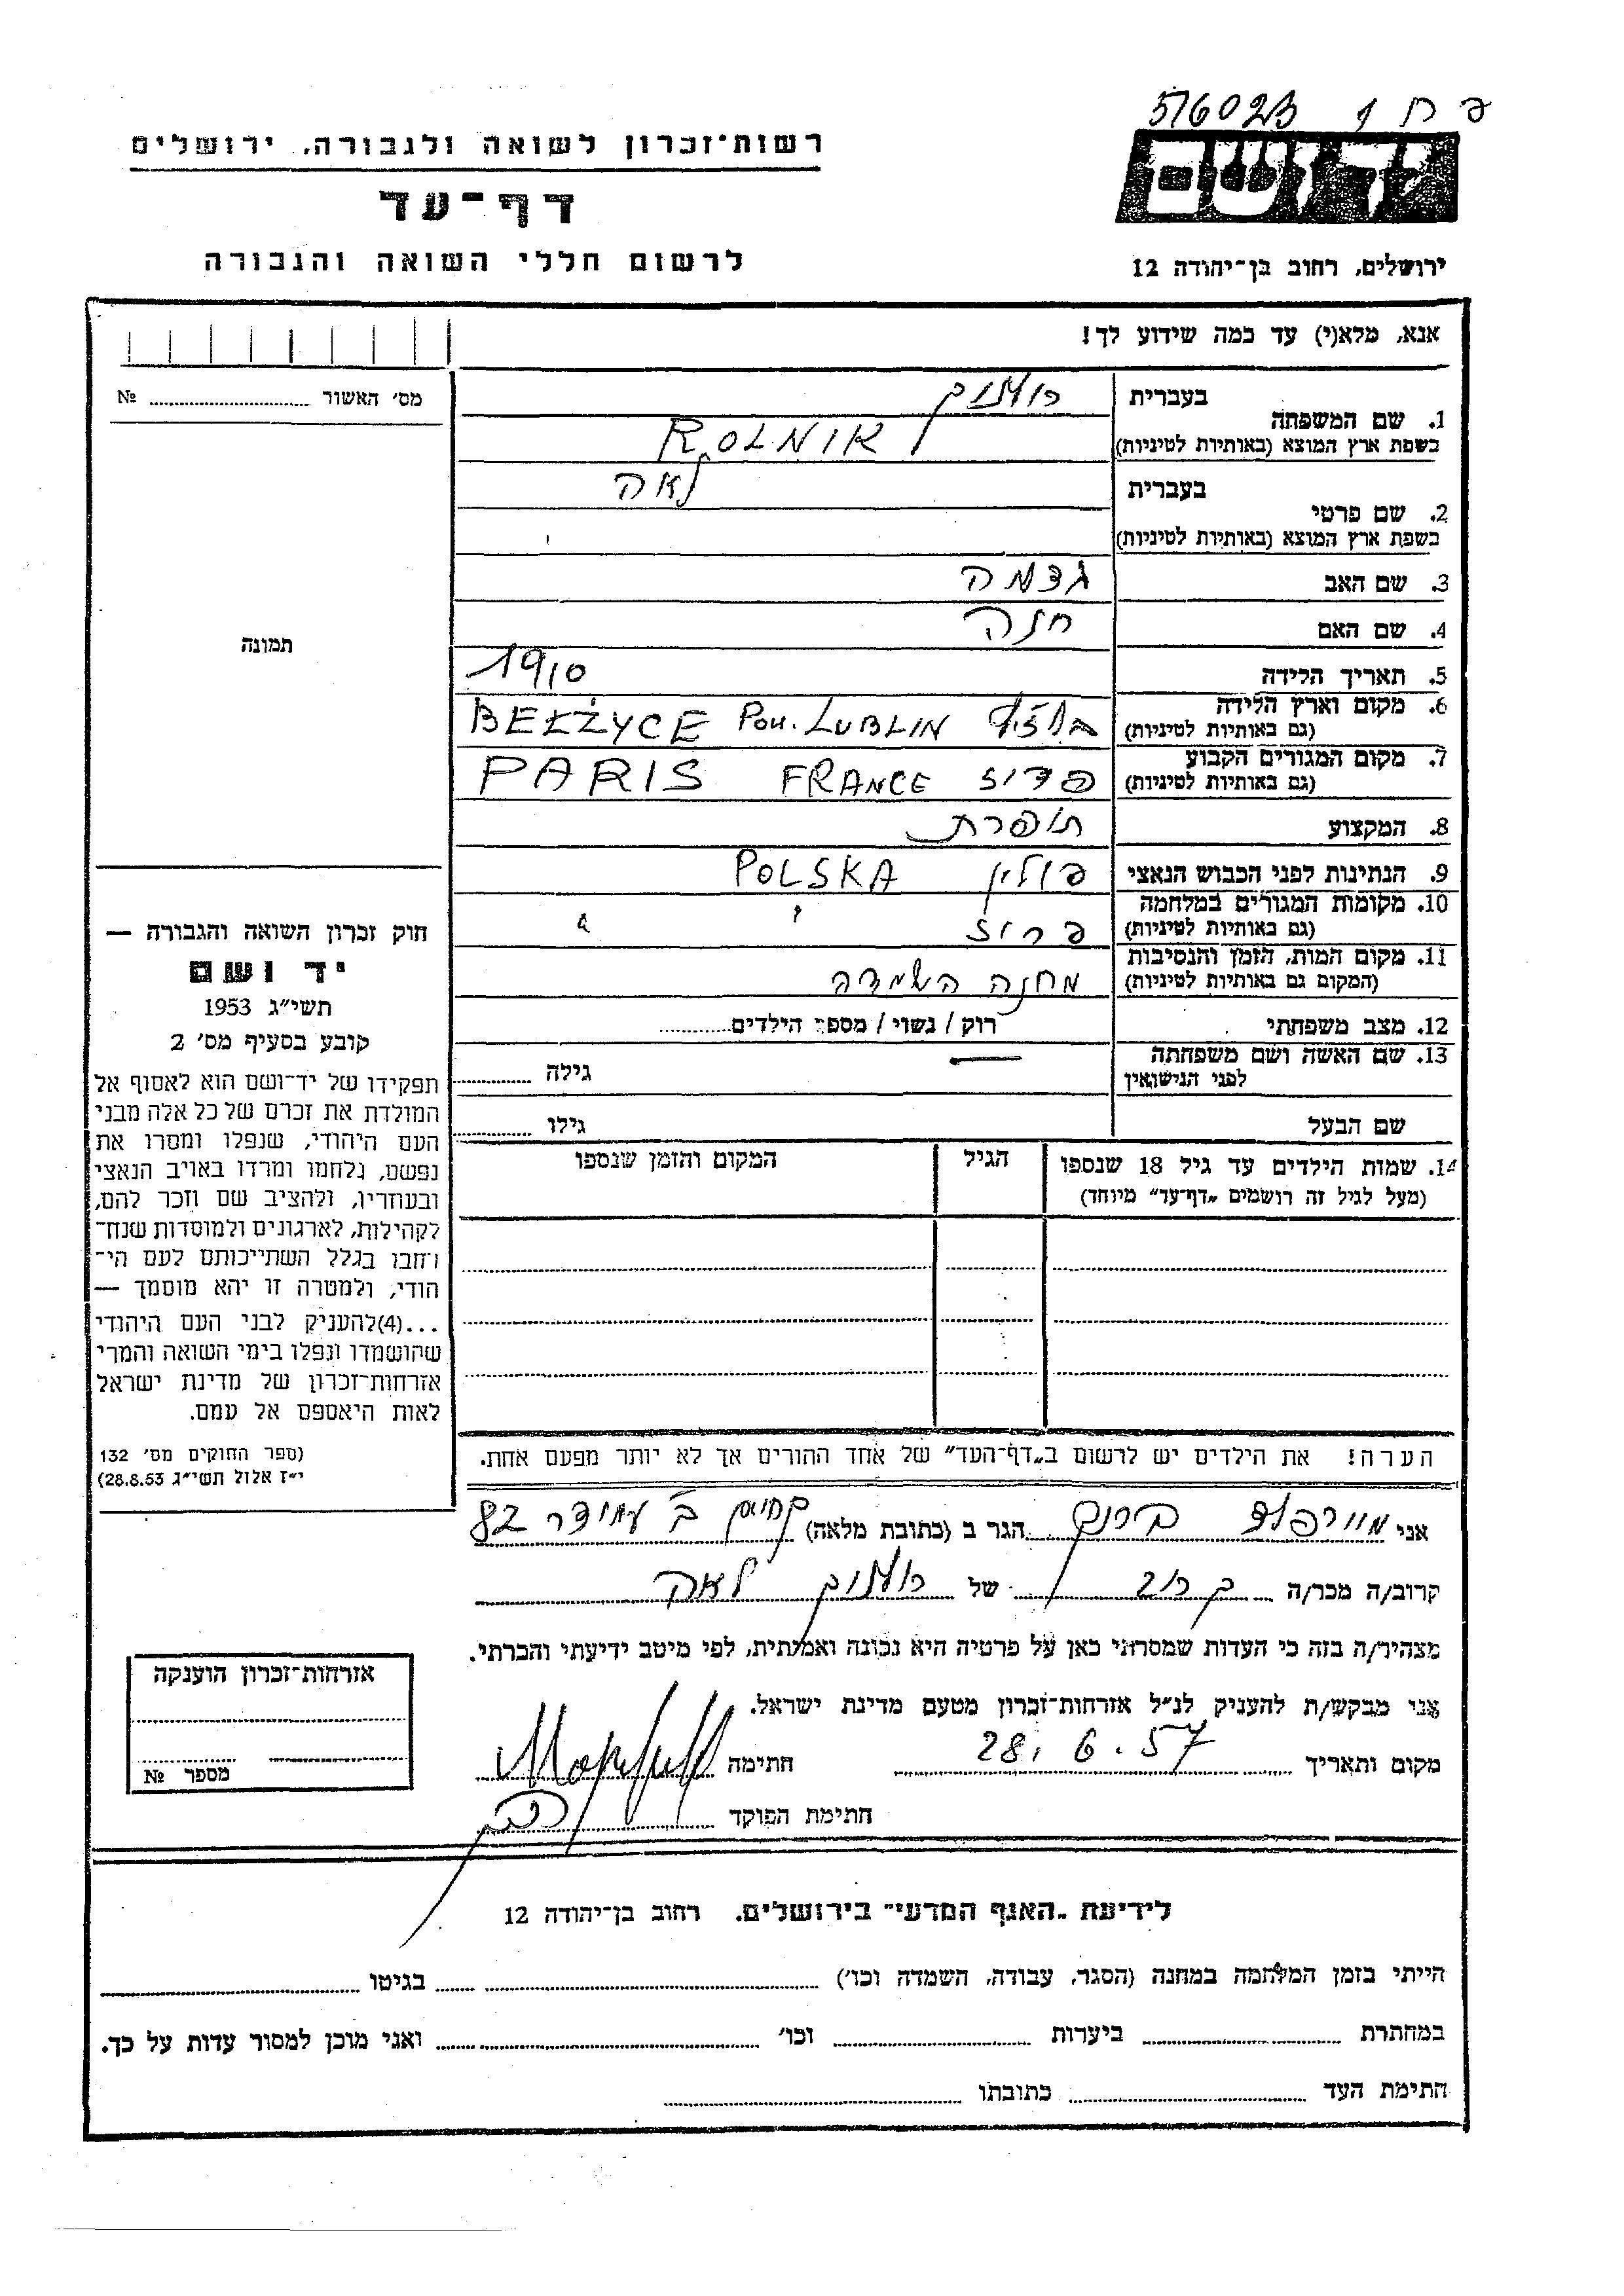 516023
רשות־זכרון לשואה ולגבורה, ירושלים
דף־עד
לרשום חללי השואה והגבורה
יד ושם
ירושלים, רחוב בן־יהודה 12
אנא, מלא(י) עד כמה שידוע לך!
מס׳ האשור № 
1. שם המשפחה בעברית רולניק
בשפת ארץ המוצא (באותיות לטיניות) ROLNIK
2. שם פרטי בעברית לאה
בשפת ארץ המוצא (באותיות לטיניות)
3. שם האב
4. שם האם חנה
תמונה
5. תאריך הלידה 1910
6. מקום וארץ הלידה
(גם באותיות לטיניות) BEŁŻYCE POW. LUBLIN
7. מקום המגורים הקבוע
(גם באותיות לטיניות) פריז FRANCE PARIS
8. המקצוע תופרת
9. הנתינות לפני הכבוש הנאצי פולין POLSKA
10. מקומות המגורים במלחמה
(גם באותיות לטיניות) פריז
11. מקום המות, הזמן והנסיבות
(המקום גם באותיות לטיניות) מחנה השמדה
12. מצב משפחתי רוק / נשוי / מספר הילדים
13. שם האשה ושם משפחתה
לפני הנישואין גילה
שם הבעל גילו
14. שמות הילדים עד גיל 18 שנספו הגיל המקום והזמן שנספו
(מעל לגיל זה רושמים „דף־עד” מיוחד)
חוק זכרון השואה והגבורה —
יד ושם
תשי״ג 1953
קובע בסעיף מס׳ 2
תפקידו של יד־ושם הוא לאסוף אל
המולדת את זכרם של כל אלה מבני
העם היהודי, שנפלו ומסרו את
נפשם, נלחמו ומרדו באויב הנאצי
ובעוזריו, ולהציב שם וזכר להם,
לקהילות, לארגונים ולמוסדות שנח־
רבו בגלל השתייכותם לעם הי־
הודי, ולמטרה זו יהא מוסמך —
...(4)להעניק לבני העם היהודי
שהושמדו ונפלו בימי השואה והמרי
אזרחות־זכרון של מדינת ישראל
לאות היאספם אל עמם.
(ספר החוקים מס׳ 132
י״ז אלול תשי״ג 28.8.53)
הערה! את הילדים יש לרשום ב„דף־העד” של אחד ההורים אך לא יותר מפעם אחת.
אני הגר ב (כתובת מלאה) 82
קרוב/ה מכר/ה של רולניק לאה
מצהיר/ה בזה כי העדות שמסרתי כאן על פרטיה היא נכונה ואמיתית, לפי מיטב ידיעתי והכרתי.
אני מבקש/ת להעניק לנ״ל אזרחות־זכרון מטעם מדינת ישראל.
מקום ותאריך 28. 6. 57 חתימה
חתימת הפוקד
אזרחות־זכרון הוענקה
מספר №
לידיעת „האגף המדעי” בירושלים, רחוב בן־יהודה 12
הייתי בזמן המלחמה במחנה (הסגר, עבודה, השמדה וכו׳) בגיטו
במחתרת ביערות וכו׳ ואני מוכן למסור עדות על כך.
חתימת העד כתובתו